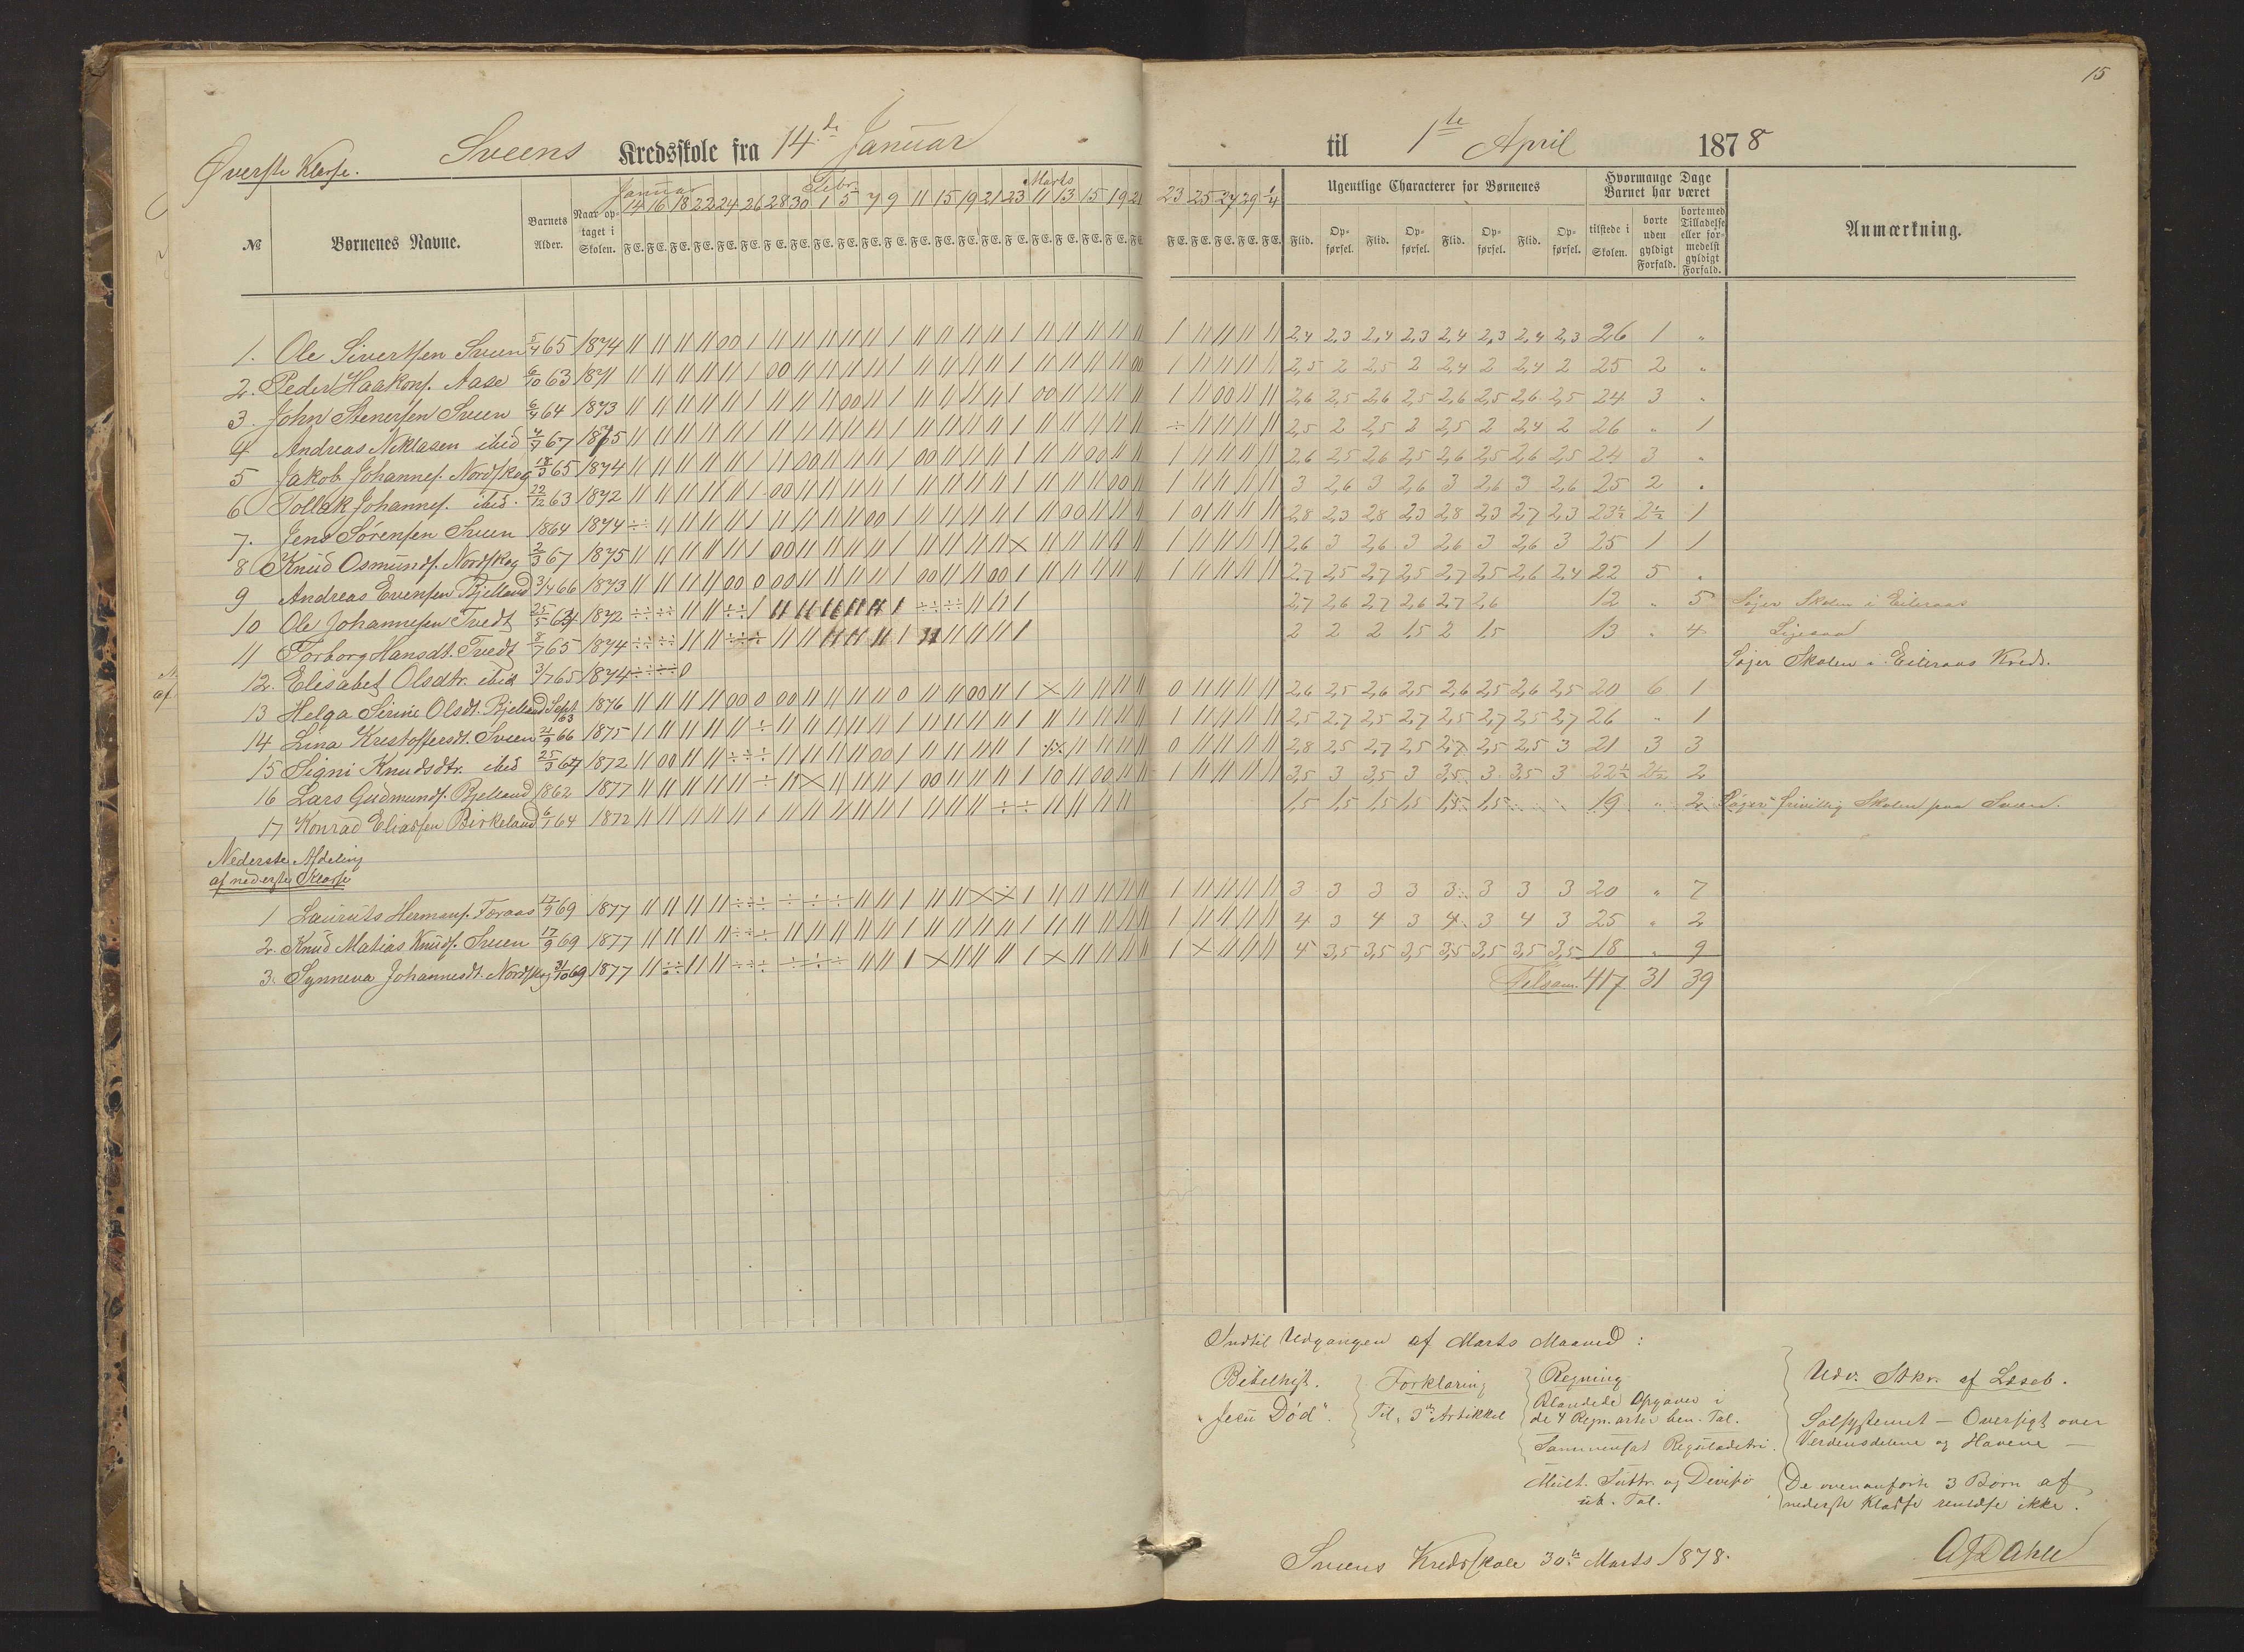 15
Sveens Kredsskole fra 14de Januar til 1ste April 1878
Øverste Klasse.
№ Børnenes Navne. Barnets Alder. Naar optaget i Skolen. Ugentlige Characterer for Børnenes Hvormange Dage Barnet har været Anmærkning.
Januar Febr. Marts
14 16 18 22 24 26 28 30 1 5 7 9 11 15 19 21 23 11 13 15 19 21 23 25 27 29 1/4
F E. F E. F E. F E. F E. F E. F E. F E. F E. F E. F E. F E. F E. F E. F E. F E. F E. F E. F E. F E. F E. F E. F E. F E. F E. F E. F E.
Flid. Opførsel. Flid. Opførsel. Flid. Opførsel. Flid. Opførsel. tilstede i Skolen. borte uden gyldigt Forfald. borte med Tilladelse eller formedelst gyldigt Forfald.
1. Ole Sivertsen Sveen 5/4 65 1874 2,4 2,3 2,4 2,3 2,4 2,3 2,4 2,3 26 1 "
2. Peder Haakons. Aase 6/10 63 1871 2,5 2 2,5 2 2,4 2 2,4 2 25 2 "
3. John Stenersen Sveen 6/4 64 1873 2,6 2,5 2,6 2,5 2,6 2,5 2,6 2,5 24 3 "
4 Andreas Niklasen ibid 67 1875 2,5 2 2,5 2 2,5 2 2,4 2 26 " 1
5 Jakob Johannes. Nordskog 65 1874 2,6 2,5 2,6 2,5 2,6 2,5 2,6 2,5 24 3 "
6 Tollak Johannes. ibid. 22/12 63 1872 3 2,6 3 2,6 3 2,6 3 2,6 25 2 "
7. Jens Sørensen Sveen 1864 1874 2,8 2,3 2,8 2,3 2,8 2,3 2,7 2,3 23½ 2½ 1
8 Knud Osmunds. Nordskog 2/3 67 1875 2,6 3 2,6 3 2,6 3 2,6 3 25 1 1
9 Andreas Evensen Bjelland 3/4 66 1873 2,7 2,5 2,7 2,5 2,7 2,5 2,6 2,4 22 5 "
10 Ole Johannesen Tvedt 25/5 64 1872 2,7 2,6 2,7 2,6 2,7 2,6 12 " 5 Søger Skolen i Eileraas
11 Torborg Hansdt. Tvedt 8/7 65 1874 2 2 2 1,5 2 1,5 13 " 4 Ligesaa
12. Elisabet Olsdtr. ibid 3/7 65 1874 Søger Skolen i Eileraas Kreds.
13 Helga Serine Olsdt. Bjelland Sept 63 1876 2,6 2,5 2,6 2,5 2,6 2,5 2,6 2,5 20 6 1
14 Lina Kristoffersdt. Sveen 21/9 66 1875 2,5 2,7 2,5 2,7 2,5 2,7 2,5 2,7 26 " 1
15 Signi Knudsdtr. ibid 25/3 64 1872 2,8 2,5 2,7 2,5 2,7 2,5 2,5 3 21 3 3
16 Lars Gudmunds. Bjelland 1862 1877 3,5 3 3,5 3 3,5 3 3,5 3 22½ 2½ 2
17 Konrad Eliassen Birkeland 6/7 64 1872 1,5 1,5 1,5 1,5 1,5 1,5 19 " 2 Søger frivillig Skolen paa Sveen.
Nederste Afdeling
af nederste Klasse
1 Lauruts Hermans. Toraas 12/9 69 1877 3 3 3 3 3 3 3 3 20 " 7
2. Knud Matias Knuds. Sveen 17/9 69 1877 4 3 4 3 4 3 4 3 25 " 2
3. Synneva Johannesdt. Nordskog 31/10 69 1877 4 3,5 3,5 3,5 3,5 3,5 3,5 3,5 18 " 9
Tilsam. 417 31 39
Indtil Udgangen af Marts Maaned:
Bibelhist.
"Jesu Død".
Forklaring
Til 3die Artikkel
Regning
Blandede Opgaver i
de 4 Regn.arter ben. Tal.
Sammensat Reguladetri.
Mult. Subtr. og Divisio
ub. Tal.
Udv. Stkr. af Læseb.
Solsystemet — Oversigt over
Verdensdelene og Havene —
De ovenanførte 3 Børn af
nederste Klasse ikke.
Sveens Kredsskole 30te Marts 1878.
Dahle